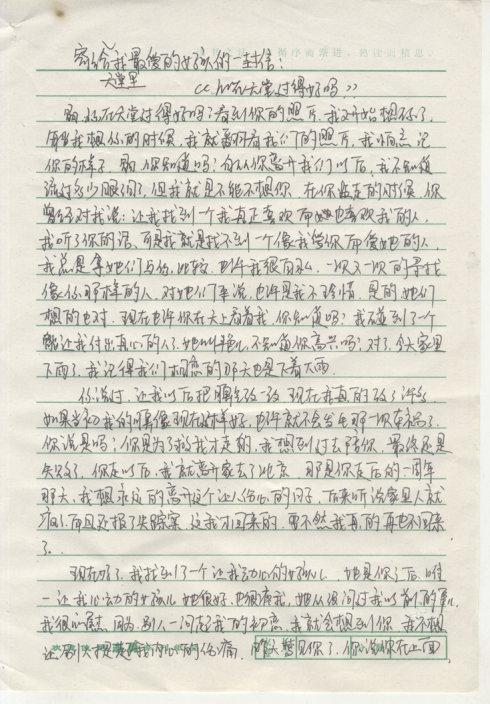 寄给我最爱的女孩的一封信：
天堂里
《你在天堂过得好吗》
你在天堂过得好吗？看到你的照片，我又开始想你了，
每当我想你的时候，我就翻看我们的照片，我怕忘记
你的样子，你知道吗？自从你离开我们以后，我不知道
流过多少眼泪了，但我就是不能不想你，在你临走的时候，你
曾经对我说：让我找到一个我真正喜欢而她也喜欢我的人，
我听了你的话，可是我就是找不到一个像我爱你而爱她的人，
我总是拿她们与你比较，也许我很自私，一次又一次的寻找
像你那样的人，对她们来说，也许是我不珍惜，是的她们
想的也对，现在也许你在天上看着我，你知道吗？我碰到了一个
能让我付出真心的人了，她叫 不知道你高兴吗？对了，今天家里
下雨了，我记得我们相恋的那天也是下着大雨
你说过，让我以后把脾气改一改，现在我真的改了许多，
如果当初我的脾气像现在这样好，也许就不会发生那一次车祸了，
你说是吗？你是为了救我才走的，我想到过去陪你，最终还是
失败了，你走以后，我就离开家去了北京，那是你走后的一周年
那天，我想永远的离开这个让人伤心的日子，后来听说家里人就
疯了，而且还报了失踪案，这我才回来的，要不然我真的再也不回来
了。
现在好了，我找到了一个让我动心的女孩儿，她是你之后，唯
一让我心动的女孩儿，她很好，也很疼我，她从没问过我以前的事儿，
我很欣慰，因为别人一问起我的初恋，我就会想到你，我不想
让别人提起我内心的伤痛，昨天梦见你了，你说你在上面